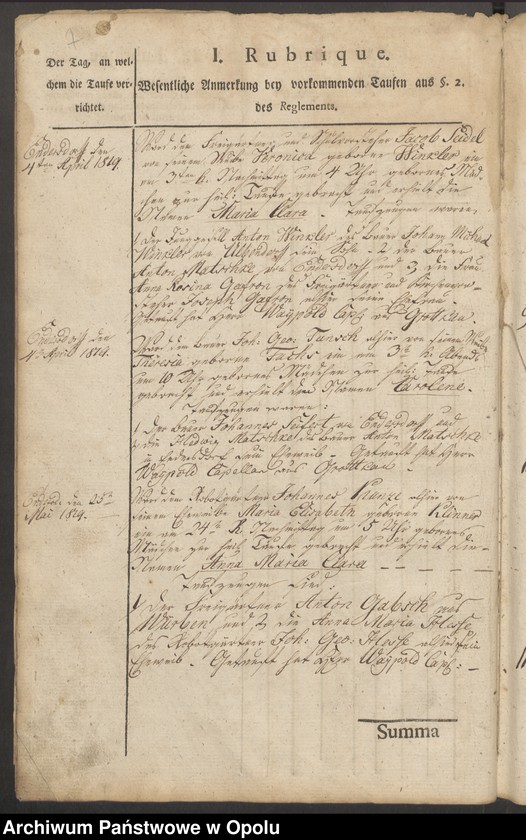 7
Der Tag, an wel-
chem die Taufe ver-
richtet.
I. Rubrique.
Wesentliche Anmerkung bey vorkommenden Taufen aus §. 2.
des Reglements.
Endersdorf den
4ten April 1819.
Ward dem Freigärtner und Jacob Seidel
von seinem Weibe geborne Winkler ein
am 3ten h. Nachmittag um 4 Uhr gebornes Mäd-
chen zur heil: Taufe gebracht und erhielt die
Namen Maria Clara. Taufzeugen waren.
1 Der Anton Winkler des Bauer Johann
Winkler von Sohn 2 der Bauer
Anton Matschke von Endersdorf und 3, die Frau
Anna Rosina Gafron des Freigärtner und
Joseph Gafron alhier
Getauft hat Herr Waypold Cap: aus Grottkau.
Endersdorf den
4ten April 1819.
Ward dem Bauer Joh: Geo: alhier von seinem Weibe
Theresia geborne Fuchs ein am 3ten h. Abends
um 10 Uhr gebornes Mädchen zur heil: Taufe
gebracht und erhielt den Namen Carolene.
Taufzeugen waren:
1 Der Bauer Johannes Seifert von Endersdorf und
2 die Hedwig Matschke des Bauer Anton Matschke
Eheweib. Getauft hat Herr
Waypold Capellan aus Grottkau.
den 25ten
May 1819.
Ward dem Robotgärtner Johannes alhier von
seinem Eheweibe Maria Elisabeth geborne
ein am 24ten h. Nachmittag um 5 Uhr gebornes
Mädchen zur heil: Taufe gebracht und erhielt die
Namen Anna Maria Clara
Taufzeugen sind:
1 Der Freigärtner Anton Gabsch aus
Würben und 2 die Anna Maria
des Robotgärtner Joh: Geo: alhier
Eheweib. Getauft hat Herr Waypold Cap:
Summa
Archiwum Państwowe w Opolu